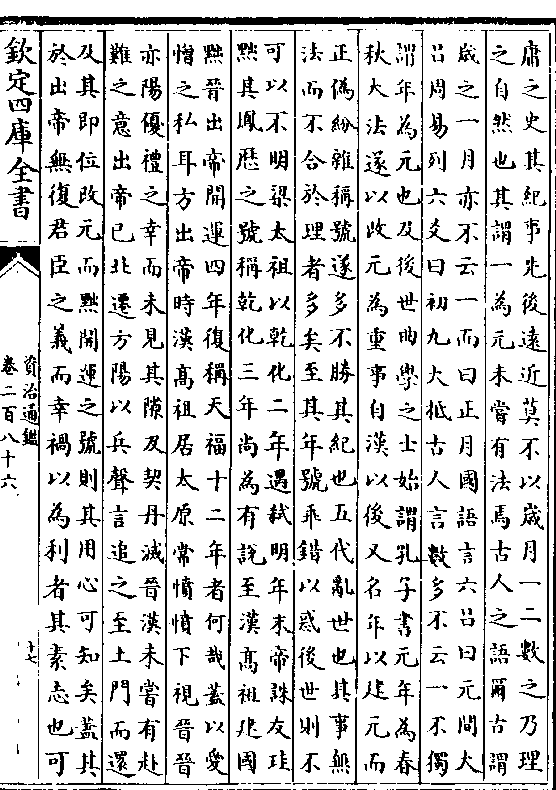 庸之史其紀事先後逺近莫不以歲月一二數之乃理
之自然也其謂一為元未嘗有法焉古人之語爾古謂
歲之一月亦不云一而曰正月國語言六呂曰元間大
呂周易列六爻曰初九大抵古人言數多不云一不獨
謂年為元也及後世曲學之士始謂孔子書元年為春
秋大法遂以改元為重事自漢以後又名年以建元而
正偽紛雜稱號遂多不勝其紀也五代亂世也其事無
法而不合於理者多矣至其年號乖錯以惑後世則不
可以不明梁太祖以乾化二年遇弑明年末帝誅友珪
黜其鳳歷之號稱乾化三年尚為有說至漢髙祖建國
黜晉出帝開運四年復稱天福十二年者何哉盖以愛
憎之私耳方出帝時漢髙祖居太原常憤憤下視晉晉
亦陽優禮之幸而未見其隙及契丹滅晉漢未嘗有赴
難之意出帝已北遷方陽以兵聲言追之至土門而還
及其即位改元而黜開運之號則其用心可知矣蓋其
於出帝無復君臣之義而幸禍以為利者其素志也可
欽定四庫全書
資治通鑑
卷二百八十六
十七